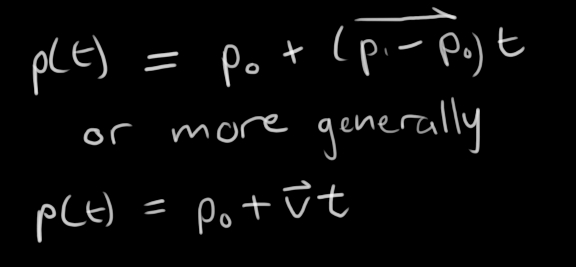 p(t) = p₀ + (p₁ - p₀) t
or more generally
p(t) = p₀ + v⃗ t